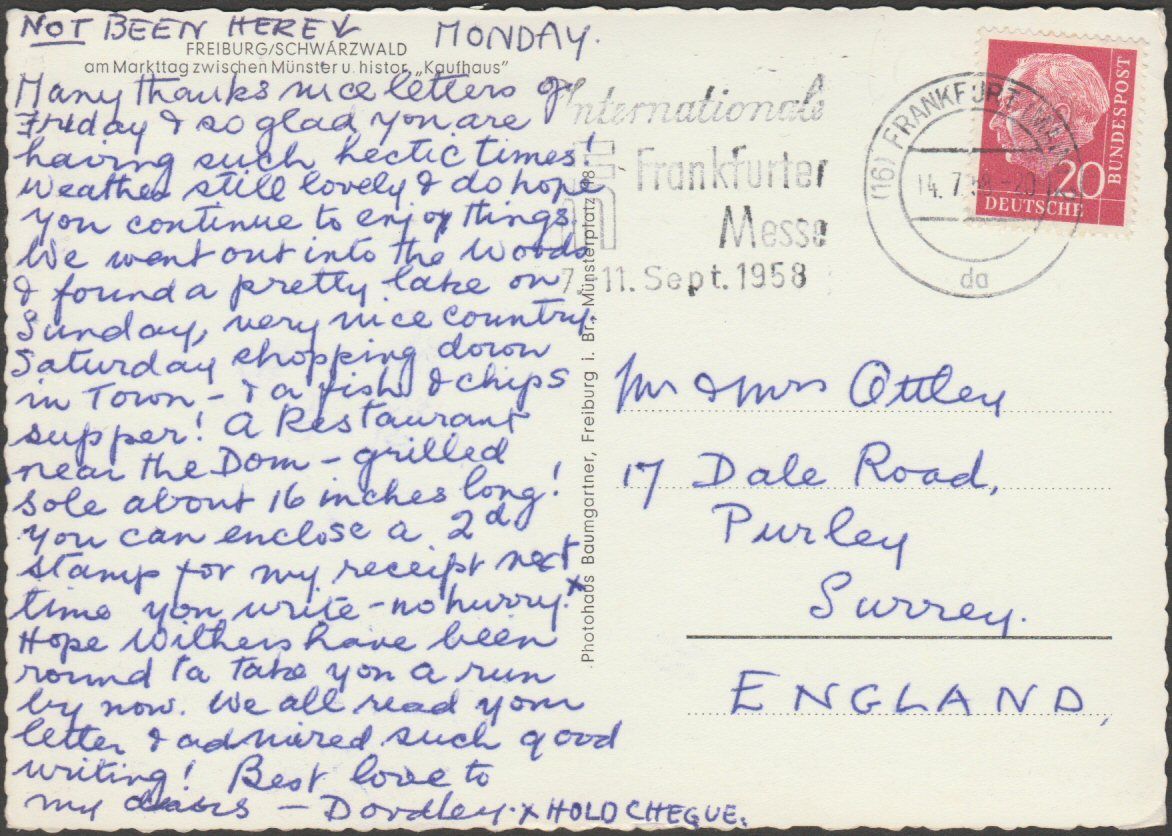 NOT BEEN HERE ↓
MONDAY.
FREIBURG/SCHWARZWALD
am Markttag zwischen Münster u. histor. „Kaufhaus"
Many thanks nice letters of
Friday & so glad you are
having such hectic times!
Weather still lovely & do hope
you continue to enjoy things.
We went out into the Woods
& found a pretty lake on
Sunday, very nice country.
Saturday shopping down
in Town - & a fish & chips
supper! A Restaurant
near the Dom - grilled
sole about 16 inches long!
You can enclose a 2d
stamp for my receipt next
time you write - no hurry. x
Hope Withers have been
round to take you a run
by now. We all read your
letter & admired such good
writing! Best love to
my dears - Dordley. x HOLD CHEQUE.
Photohaus Baumgartner, Freiburg i. Br., Münsterplatz
Internationale
Frankfurter
Messe
7. 11. Sept. 1958
(16) FRANKFURT
14. 7.
da
20
DEUTSCHE
BUNDESPOST
Mr & Mrs Ottley
17 Dale Road,
Purley
Surrey.
ENGLAND,